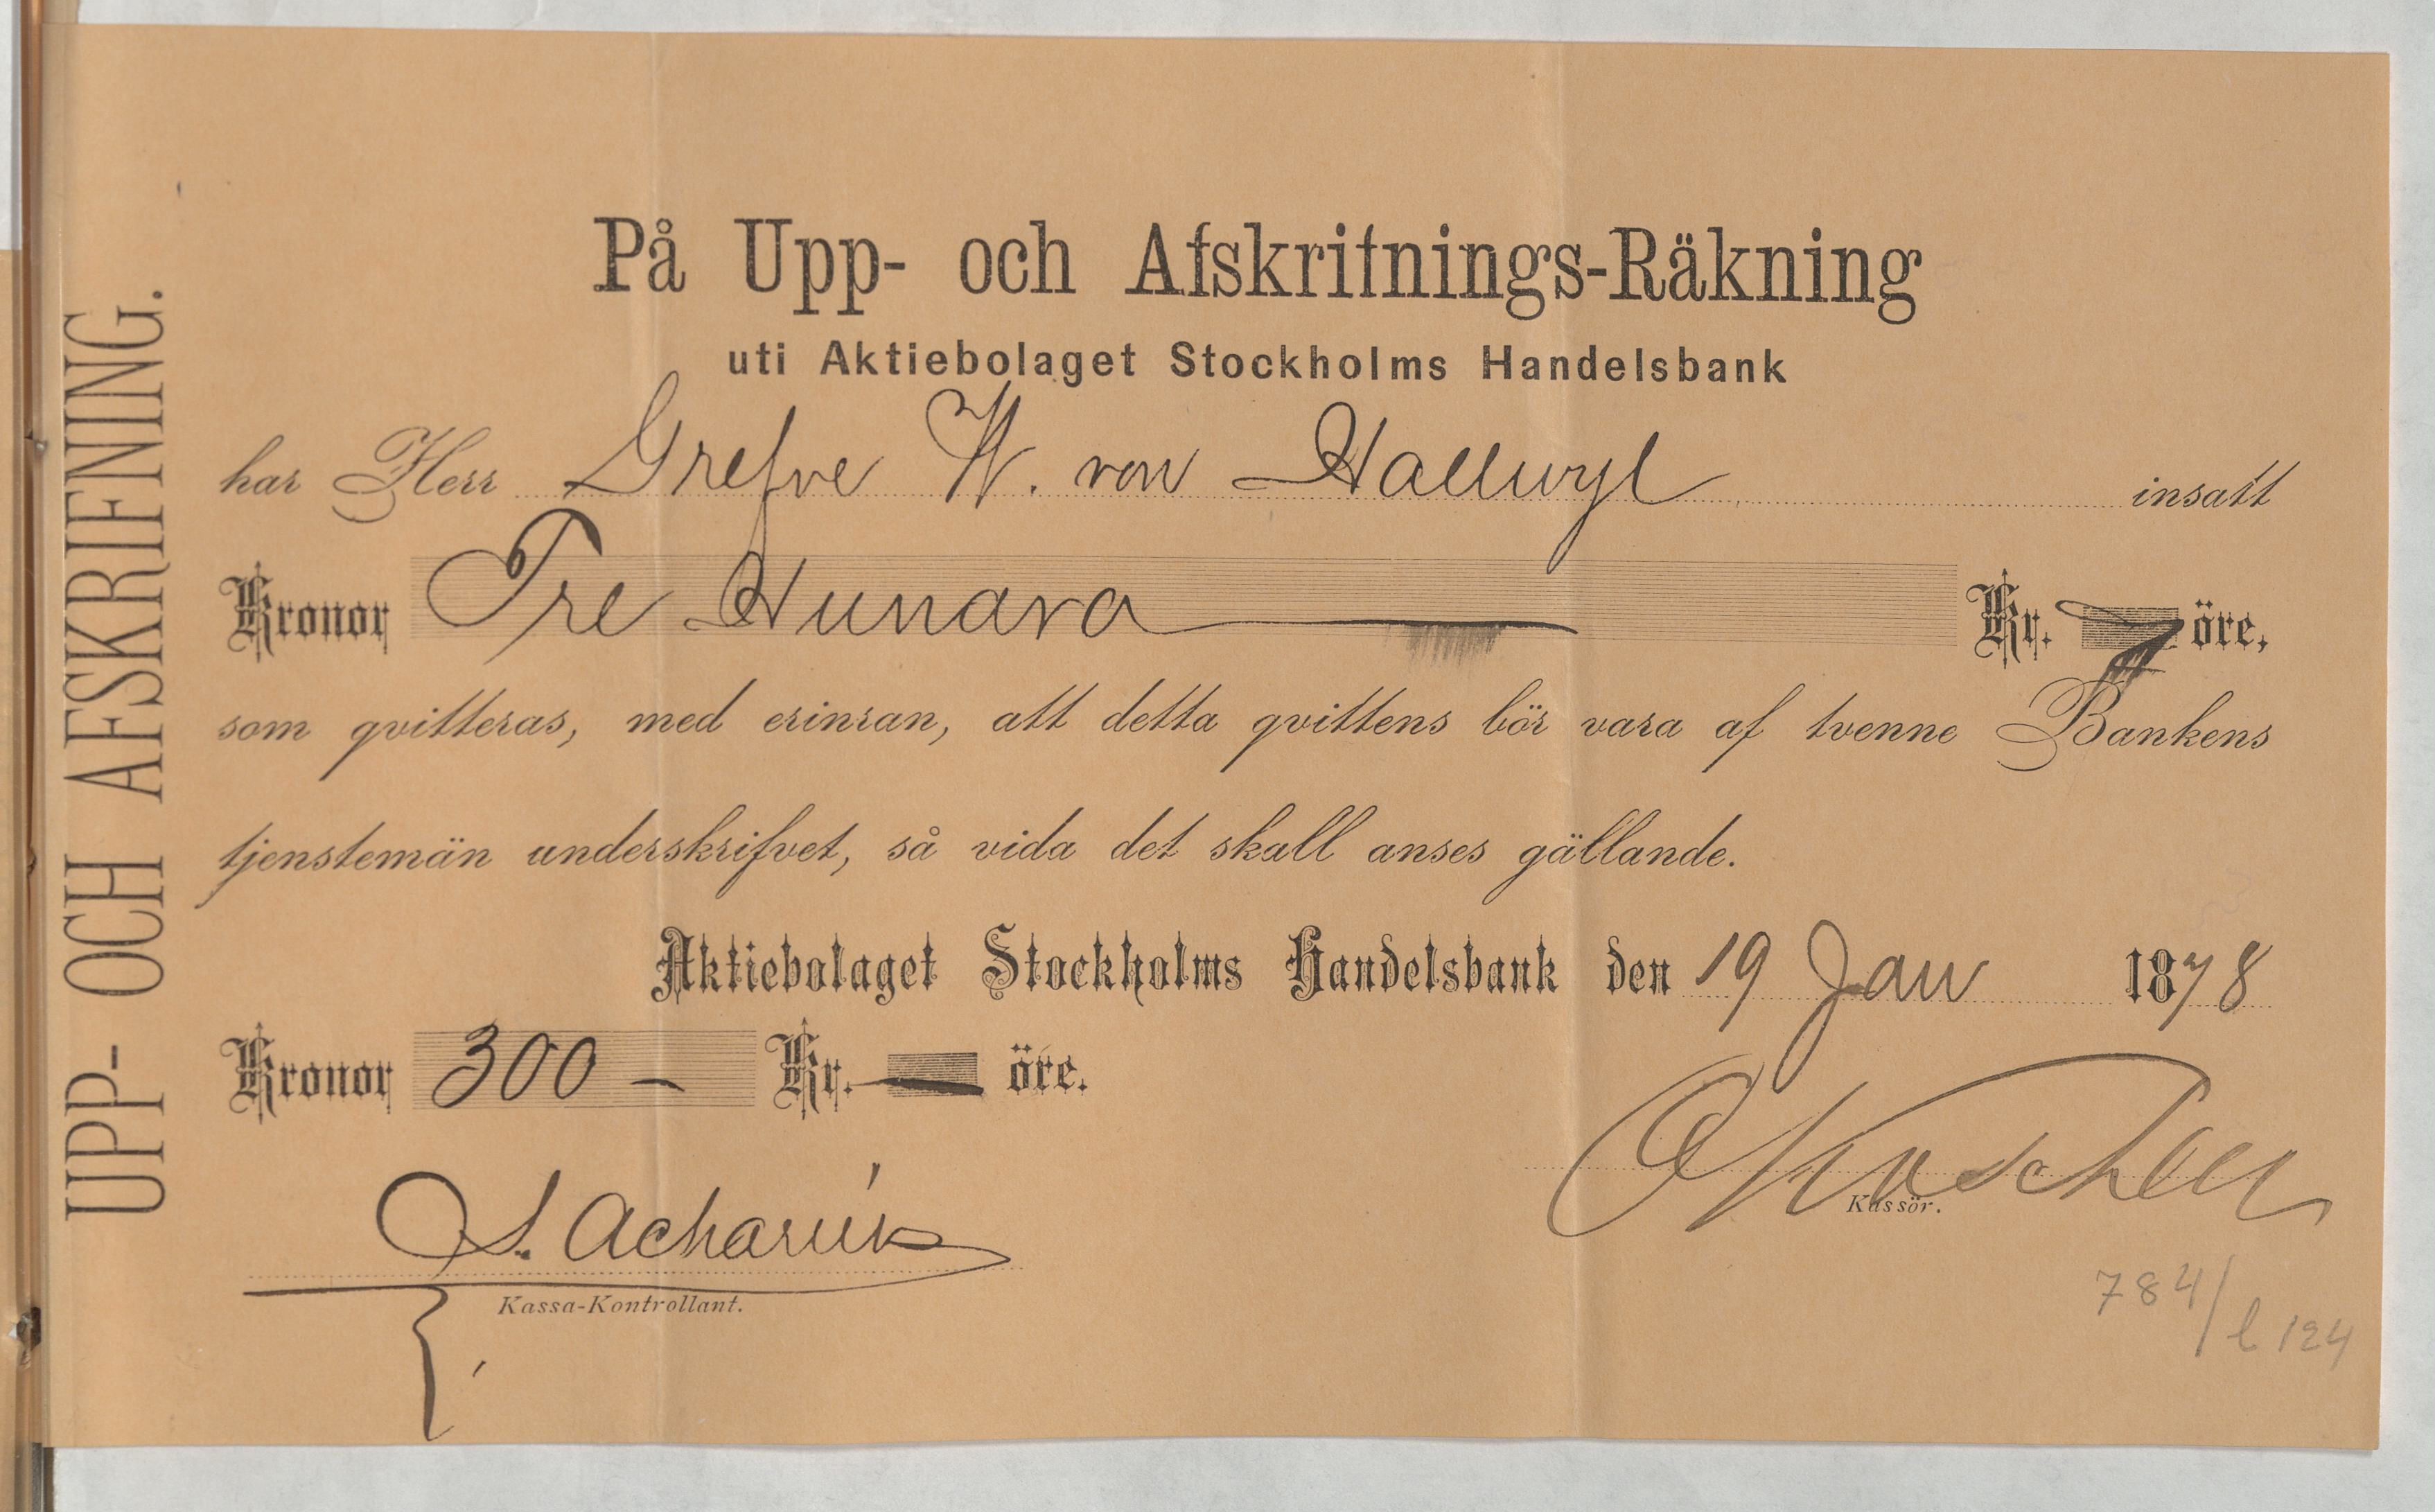 UPP- OCH AFSKRIFNING.
På Upp- och Afskrifnings-Räkning
uti Aktiebolaget Stockholms Handelsbank
har Herr Grefve W. von Hallwyl insatt
Kronor Tre Hundra — Kr. — öre,
som qvitteras, med erinran, att detta qvittens bör vara af tvenne Bankens
tjenstemän underskrifvet, så vida det skall anses gällande.
Aktiebolaget Stockholms Handelsbank den 19 Jan 1878
Kronor 300 — Kr. — öre.
Acharius
Kassör.
Kassa-Kontrollant.
784/l 124